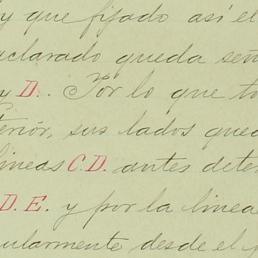 y que fijado así el
clarado queda señ
y D. Por lo que to
terior, sus lados qued
lineas C.D. antes deter
D. E. y por la linea
ularmente desde el